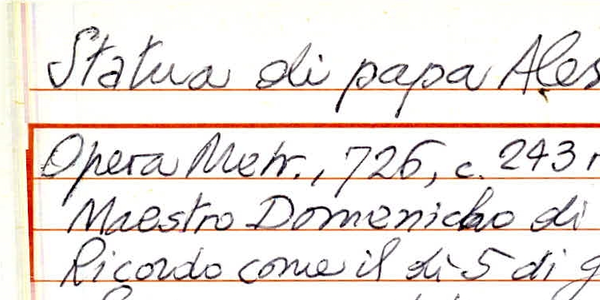 Statua di papa Ales
Opera Metr., 726, c. 243 r
Maestro Domenicho di
Ricordo come il dì 5 di g